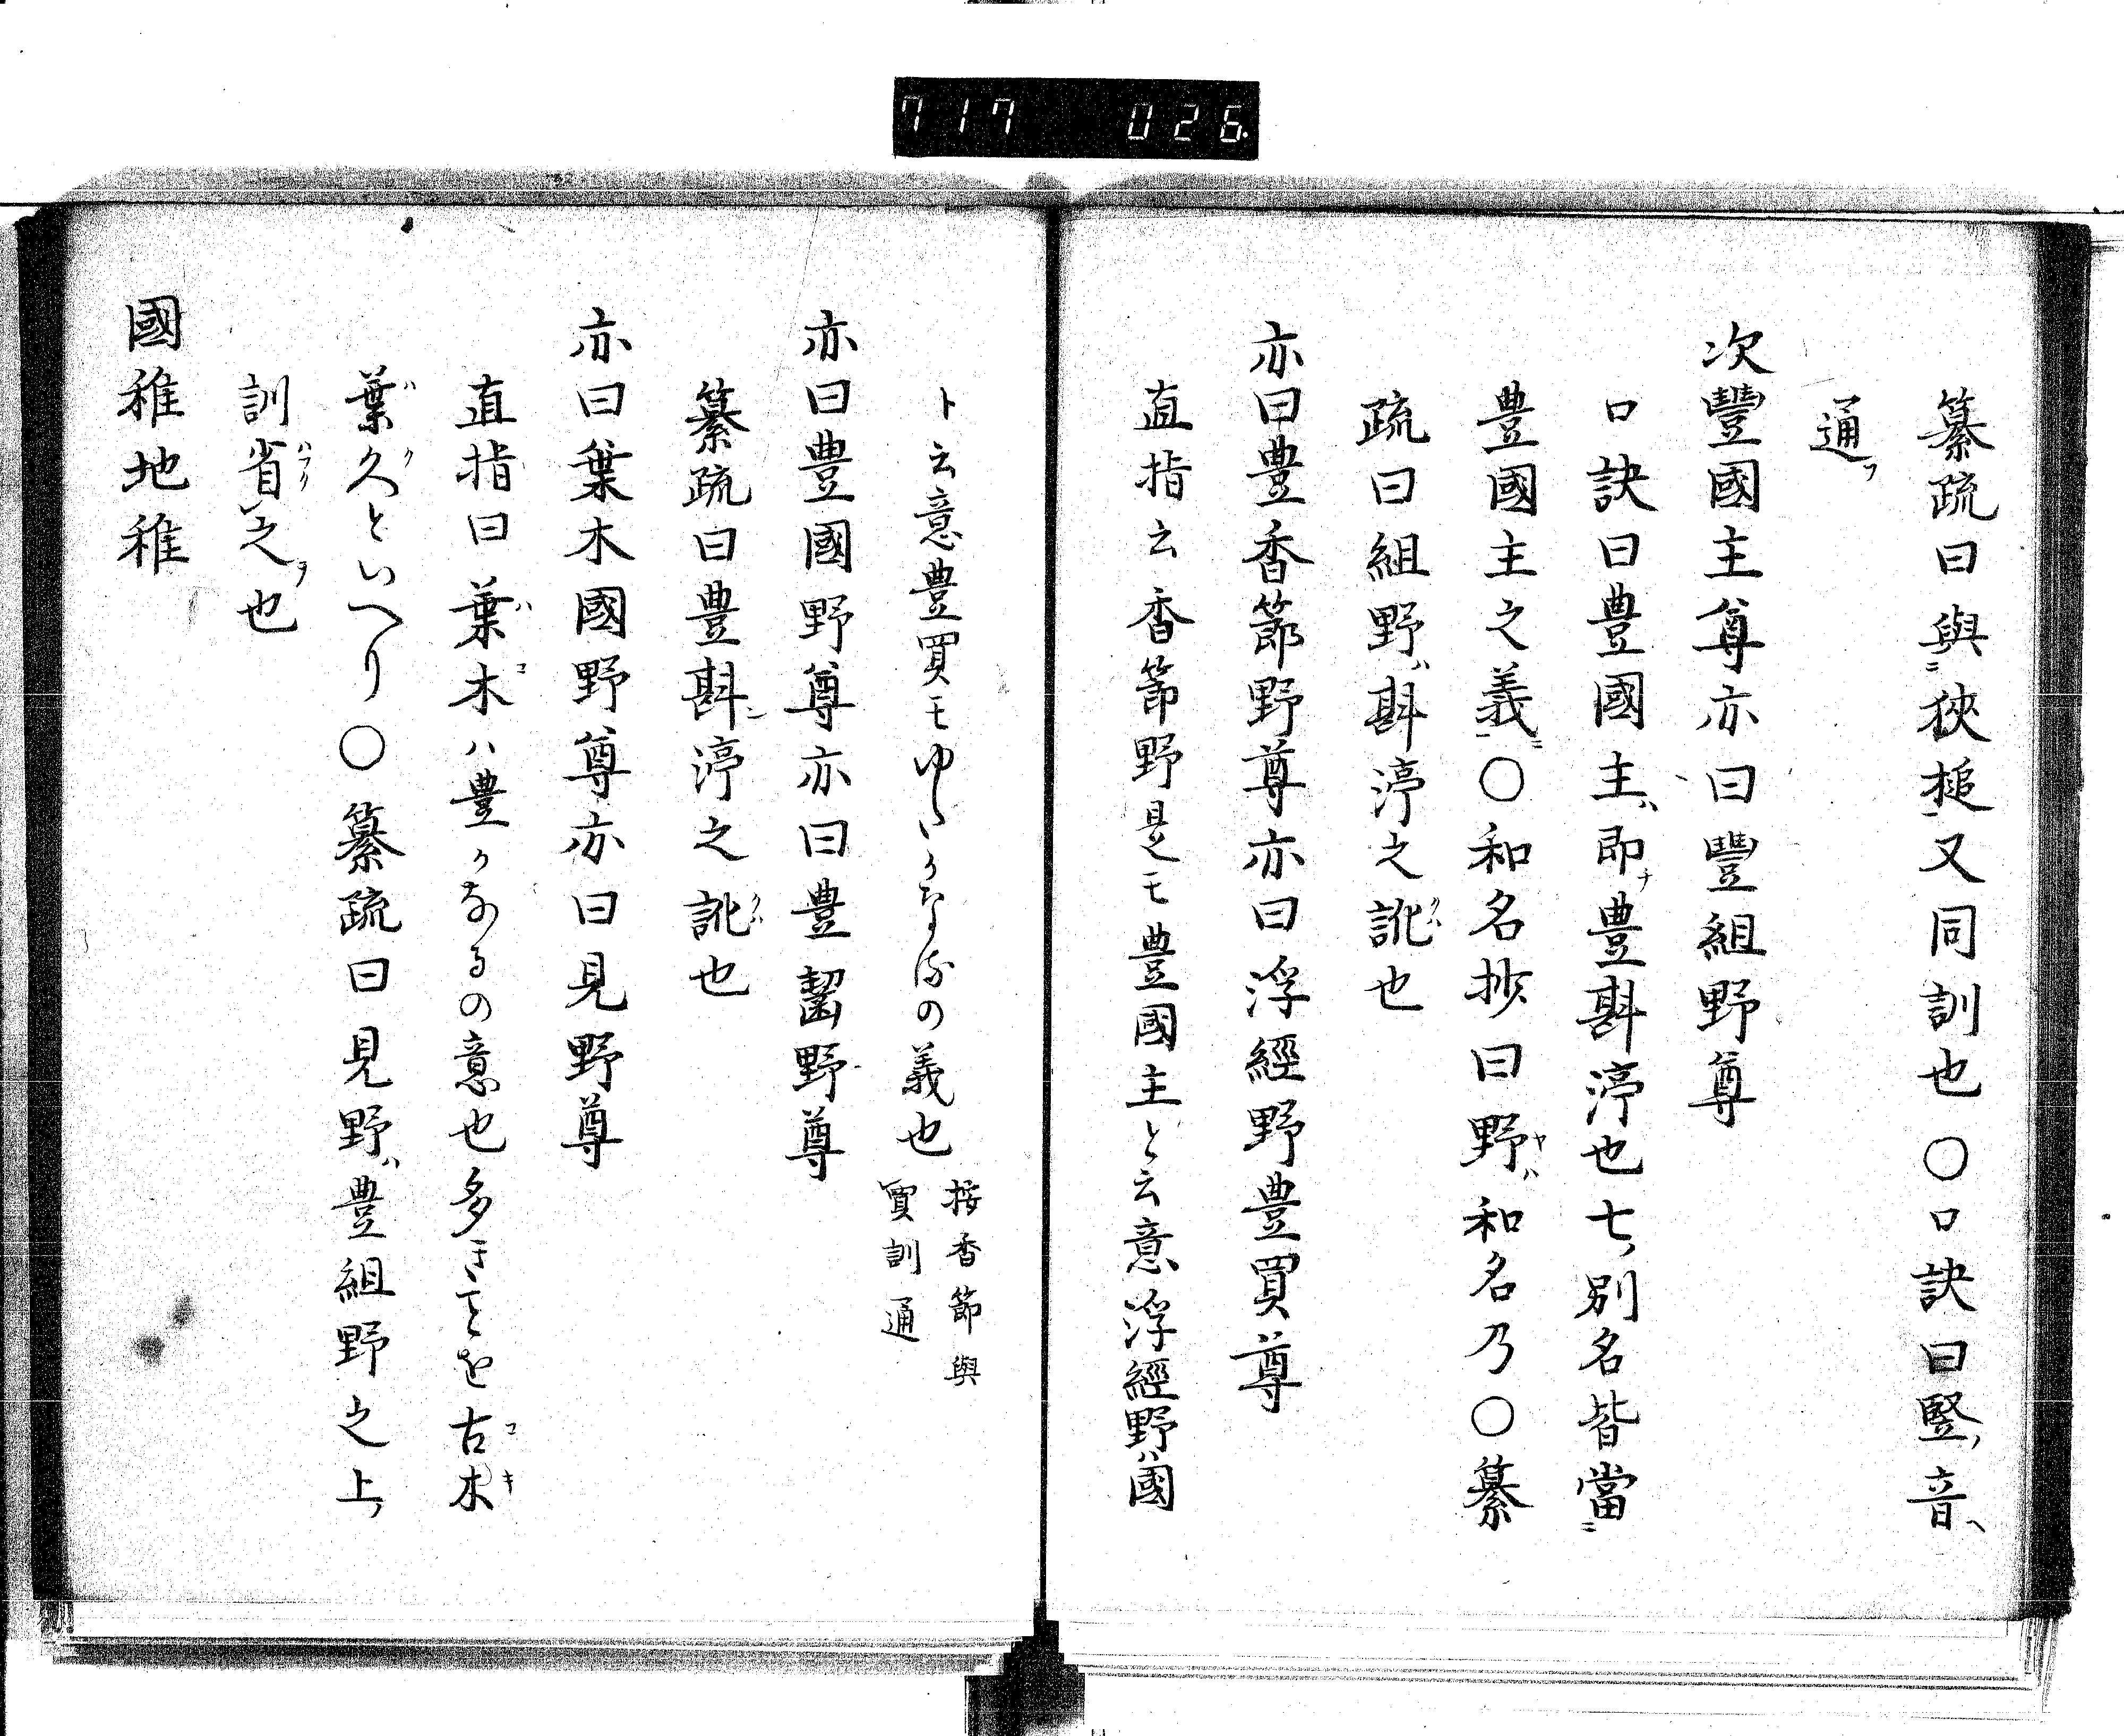 717 026.
纂疏曰與ニ狹槌又同訓也〇口訣曰竪ノ音ヘ
通フ
次豐國主尊亦曰豐組野尊
口訣曰豊國主ハ即ナ豊斟渟也七ノ別名皆當ニ
豊國主之義ニ〇和名抄曰野ヤハ和名乃〇纂
疏曰組野ハ斟渟之訛也
亦曰豊香節野尊亦曰浮經野豊買尊
直指云香節野是モ豊國主ト云意浮經野ハ國
ト云意豊買モゆたかなるの義也 按香節與
買訓通
亦曰豊國野尊亦曰豊齧野尊
纂疏曰豊斟渟之訛也
亦曰葉木國野尊亦曰見野尊
直指曰葉ハ木コハ豊かなるの意也多きことを古コ木キ
葉ハ久クといへり〇纂疏曰見野ハ豊組野之上ノ
訓省ハフク之ヲ也
國稚地稚